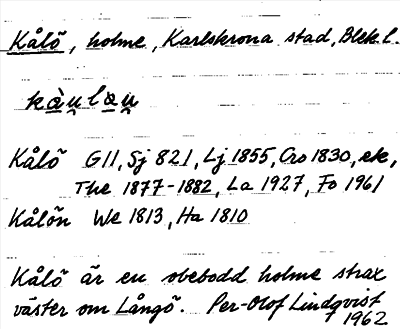 Kålö, holme, Karlskrona stad, Blek l.
kàu̯la̱u̯
Kålö GII, Sj 821, Lj 1855, Cro 1830, ek,
The 1877-1882, La 1927, Fo 1961
Kålön We 1813, Ha 1810
Kålö är en obebodd holme strax
väster om Långö. Per-Olof Lindqvist
1962